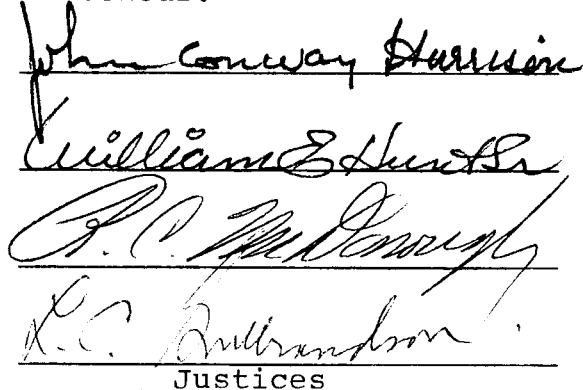 John Conway Harrison
William E Hunt Sr
R. C. McDonough
L. C. Gulbrandson
Justices